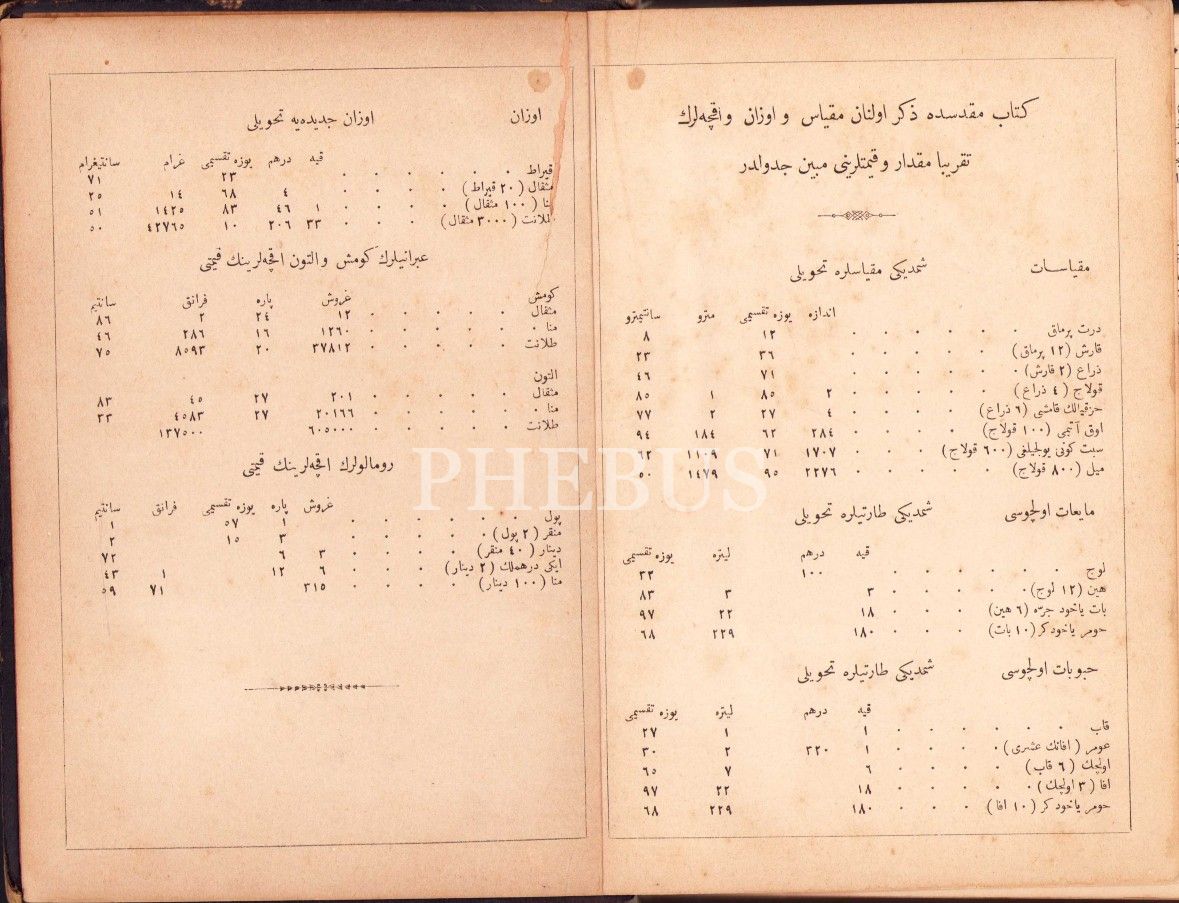 كتاب مقدسده ذكر اولنان مقياس و اوزان و اقچه‌لرك
تقريبا مقدار و قيمتلرينى مبين جدولدر
مقياسات شمديكى مقياسلره تحويلى
اندازه يوزه تقسيمى مترو سانتيمترو
درت پرماق ١٢ ٨
قارش (١٢ پرماق) ٣٦ ٢٣
ذراع (٢ قارش) ٧١ ٤٦
قولاج (٤ ذراع) ٢ ٨٥ ١ ٨٥
حزقيالك قامشى (٦ ذراع) ٤ ٢٧ ٢ ٧٧
اوق آتيمى (١٠٠ قولاج) ٢٨٤ ٦٢ ١٨٤ ٩٤
سبت كونى يولجيلغى (٦٠٠ قولاج) ١٧٠٧ ٧١ ١١٠٩ ٦٢
ميل (٨٠٠ قولاج) ٢٢٧٦ ٩٥ ١٤٧٩ ٥٠
مايعات اولچوسى شمديكى طارتيلره تحويلى
قيه درهم ليتره يوزه تقسيمى
لوج ١٠٠ ٣٢
هين (١٢ لوج) ٣ ٣ ٨٣
بات ياخود جره (٦ هين) ١٨ ٢٢ ٩٧
حومر ياخود كر (١٠ بات) ١٨٠ ٢٢٩ ٦٨
حبوبات اولچوسى شمديكى طارتيلره تحويلى
قيه درهم ليتره يوزه تقسيمى
قاب ١ ١ ٢٧
عومر (افانك عشرى) ١ ٣٢٠ ٢ ٣٠
اولچك (٦ قاب) ٦ ٧ ٦٥
افا (٣ اولچك) ١٨ ٢٢ ٩٧
حومر ياخود كر (١٠ افا) ١٨٠ ٢٢٩ ٦٨
اوزان اوزان جديده‌يه تحويلى
قيه درهم يوزه تقسيمى غرام سانتيغرام
قيراط ٢٣ ٧١
مثقال (٢٠ قيراط) ٤ ٦٨ ١٤ ٢٥
منا (١٠٠ مثقال) ١ ٤٦ ٨٣ ١٤٢٥ ٥١
طلانت (٣٠٠٠ مثقال) ٣٣ ٢٠٦ ١٠ ٤٢٧٦٥ ٥٠
عبرانيلرك كومش و التون اقچه‌لرينك قيمتى
كومش غروش پاره فرانق سانتيم
مثقال ١٢ ٢٤ ٢ ٨٦
منا ١٢٦٠ ١٦ ٢٨٦ ٤٦
طلانت ٣٧٨١٢ ٢٠ ٨٥٩٣ ٧٥
التون
مثقال ٢٠١ ٢٧ ٤٥ ٨٣
منا ٢٠١٦٦ ٢٧ ٤٥٨٣ ٣٣
طلانت ٦٠٥٠٠٠ ١٣٧٥٠٠
رومالولرك اقچه‌لرينك قيمتى
غروش پاره يوزه تقسيمى فرانق سانتيم
پول ١ ٥٧ ١
منقر (٢ پول) ٣ ١٥ ٢
دينار (٤٠ منقر) ٣ ٦ ٧٢
ايكى درهملك (٢ دينار) ٦ ١٢ ١ ٤٣
منا (١٠٠ دينار) ٣١٥ ٧١ ٥٩
PHEBUS